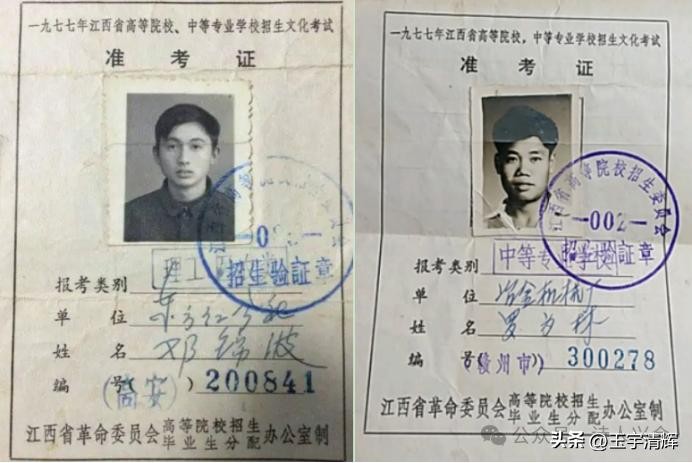 一九七七年江西省高等院校、中等专业学校招生文化考试
准考证
江西省高等院校招生委员会
招生验証章
报考类别 理工
单位 东方红公社
姓名 邓锦波
编号(高安) 200841
江西省革命委员会高等院校招生毕业生分配办公室制
一九七七年江西省高等院校，中等专业学校招生文化考试
准考证
江西省高等院校招生委员会
—002—
招生验証章
报考类别 中等专业学校
单位 冶金机械厂
姓名 罗
编号(赣州市) 300278
江西省革命委员会高等院校招生毕业生分配办公室制
公众号
头条 @玉宇清辉